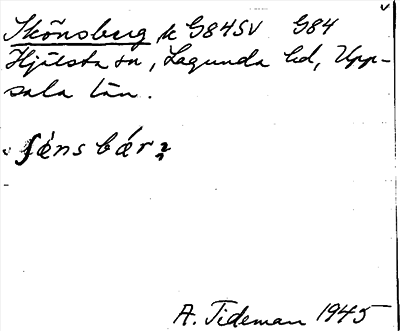 Skönsberg k G84SV G84
Hjälsta sn, Lagunda hd, Upp-
sala län.
ʃö̀nsbær
A. Tideman 1945